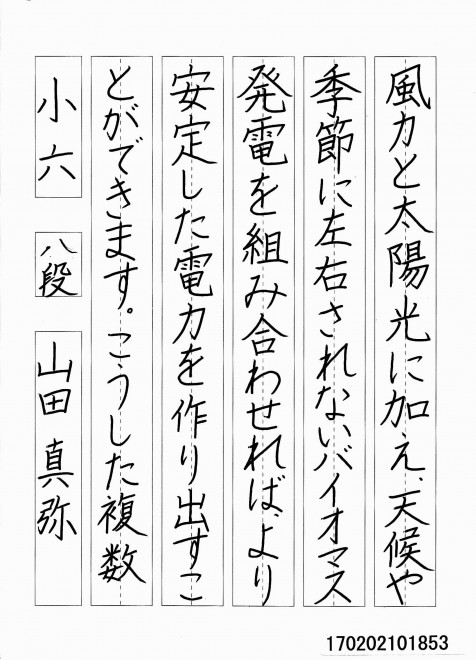 風力と太陽光に加え、天候や
季節に左右されないバイオマス
発電を組み合わせれば、より
安定した電力を作り出すこ
とができます。こうした複数
小六 八段 山田真弥
170202101853